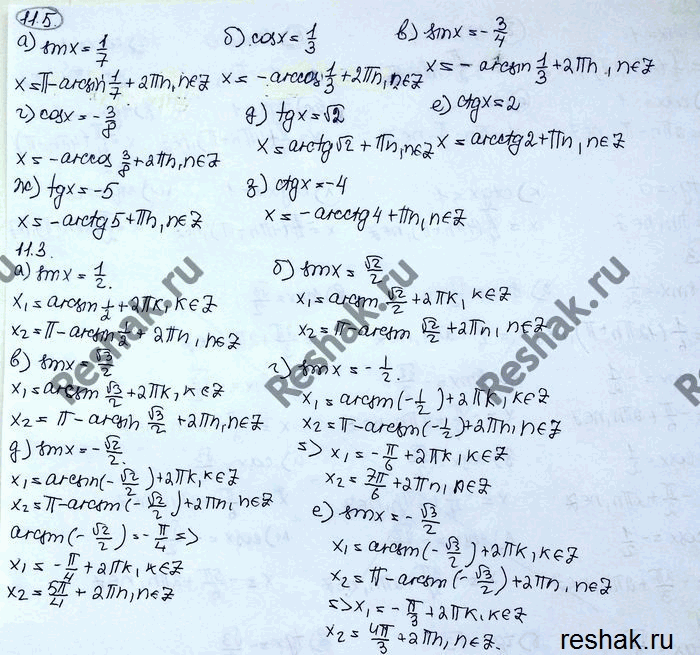 11.5.
а) sinx = 1/7
б) cosx = 1/3
в) sinx = -3/4
x = π - arcsin 1/7 + 2πn, n∈Z
x = -arccos 1/3 + 2πn, n∈Z
x = -arcsin 1/3 + 2πn, n∈Z
г) cosx = -3/8
д) tgx = √2
е) ctgx = 2
x = -arccos 3/8 + 2πn, n∈Z
x = arctg√2 + πn, n∈Z
x = arcctg2 + πn, n∈Z
ж) tgx = -5
з) ctgx = -4
x = -arctg5 + πn, n∈Z
x = -arcctg4 + πn, n∈Z
11.3.
а) sinx = 1/2.
x₁ = arcsin 1/2 + 2πk, k∈Z
x₂ = π - arcsin 1/2 + 2πn, n∈Z
б) sinx = √2/2
x₁ = arcsin √2/2 + 2πk, k∈Z
x₂ = π - arcsin √2/2 + 2πn, n∈Z
в) sinx = √3/2
x₁ = arcsin √3/2 + 2πk, k∈Z
x₂ = π - arcsin √3/2 + 2πn, n∈Z
г) sinx = -1/2.
x₁ = arcsin(-1/2) + 2πk, k∈Z
x₂ = π - arcsin(-1/2) + 2πn, n∈Z
=> x₁ = -π/6 + 2πk, k∈Z
x₂ = 7π/6 + 2πn, n∈Z
д) sinx = -√2/2.
x₁ = arcsin(-√2/2) + 2πk, k∈Z
x₂ = π - arcsin(-√2/2) + 2πn, n∈Z
arcsin(-√2/2) = -π/4 =>
x₁ = -π/4 + 2πk, k∈Z
x₂ = 5π/4 + 2πn, n∈Z
е) sinx = -√3/2
x₁ = arcsin(-√3/2) + 2πk, k∈Z
x₂ = π - arcsin(-√3/2) + 2πn, n∈Z
=> x₁ = -π/3 + 2πk, k∈Z
x₂ = 4π/3 + 2πn, n∈Z.
Reshak.ru
Reshak.ru
Reshak.ru
reshak.ru